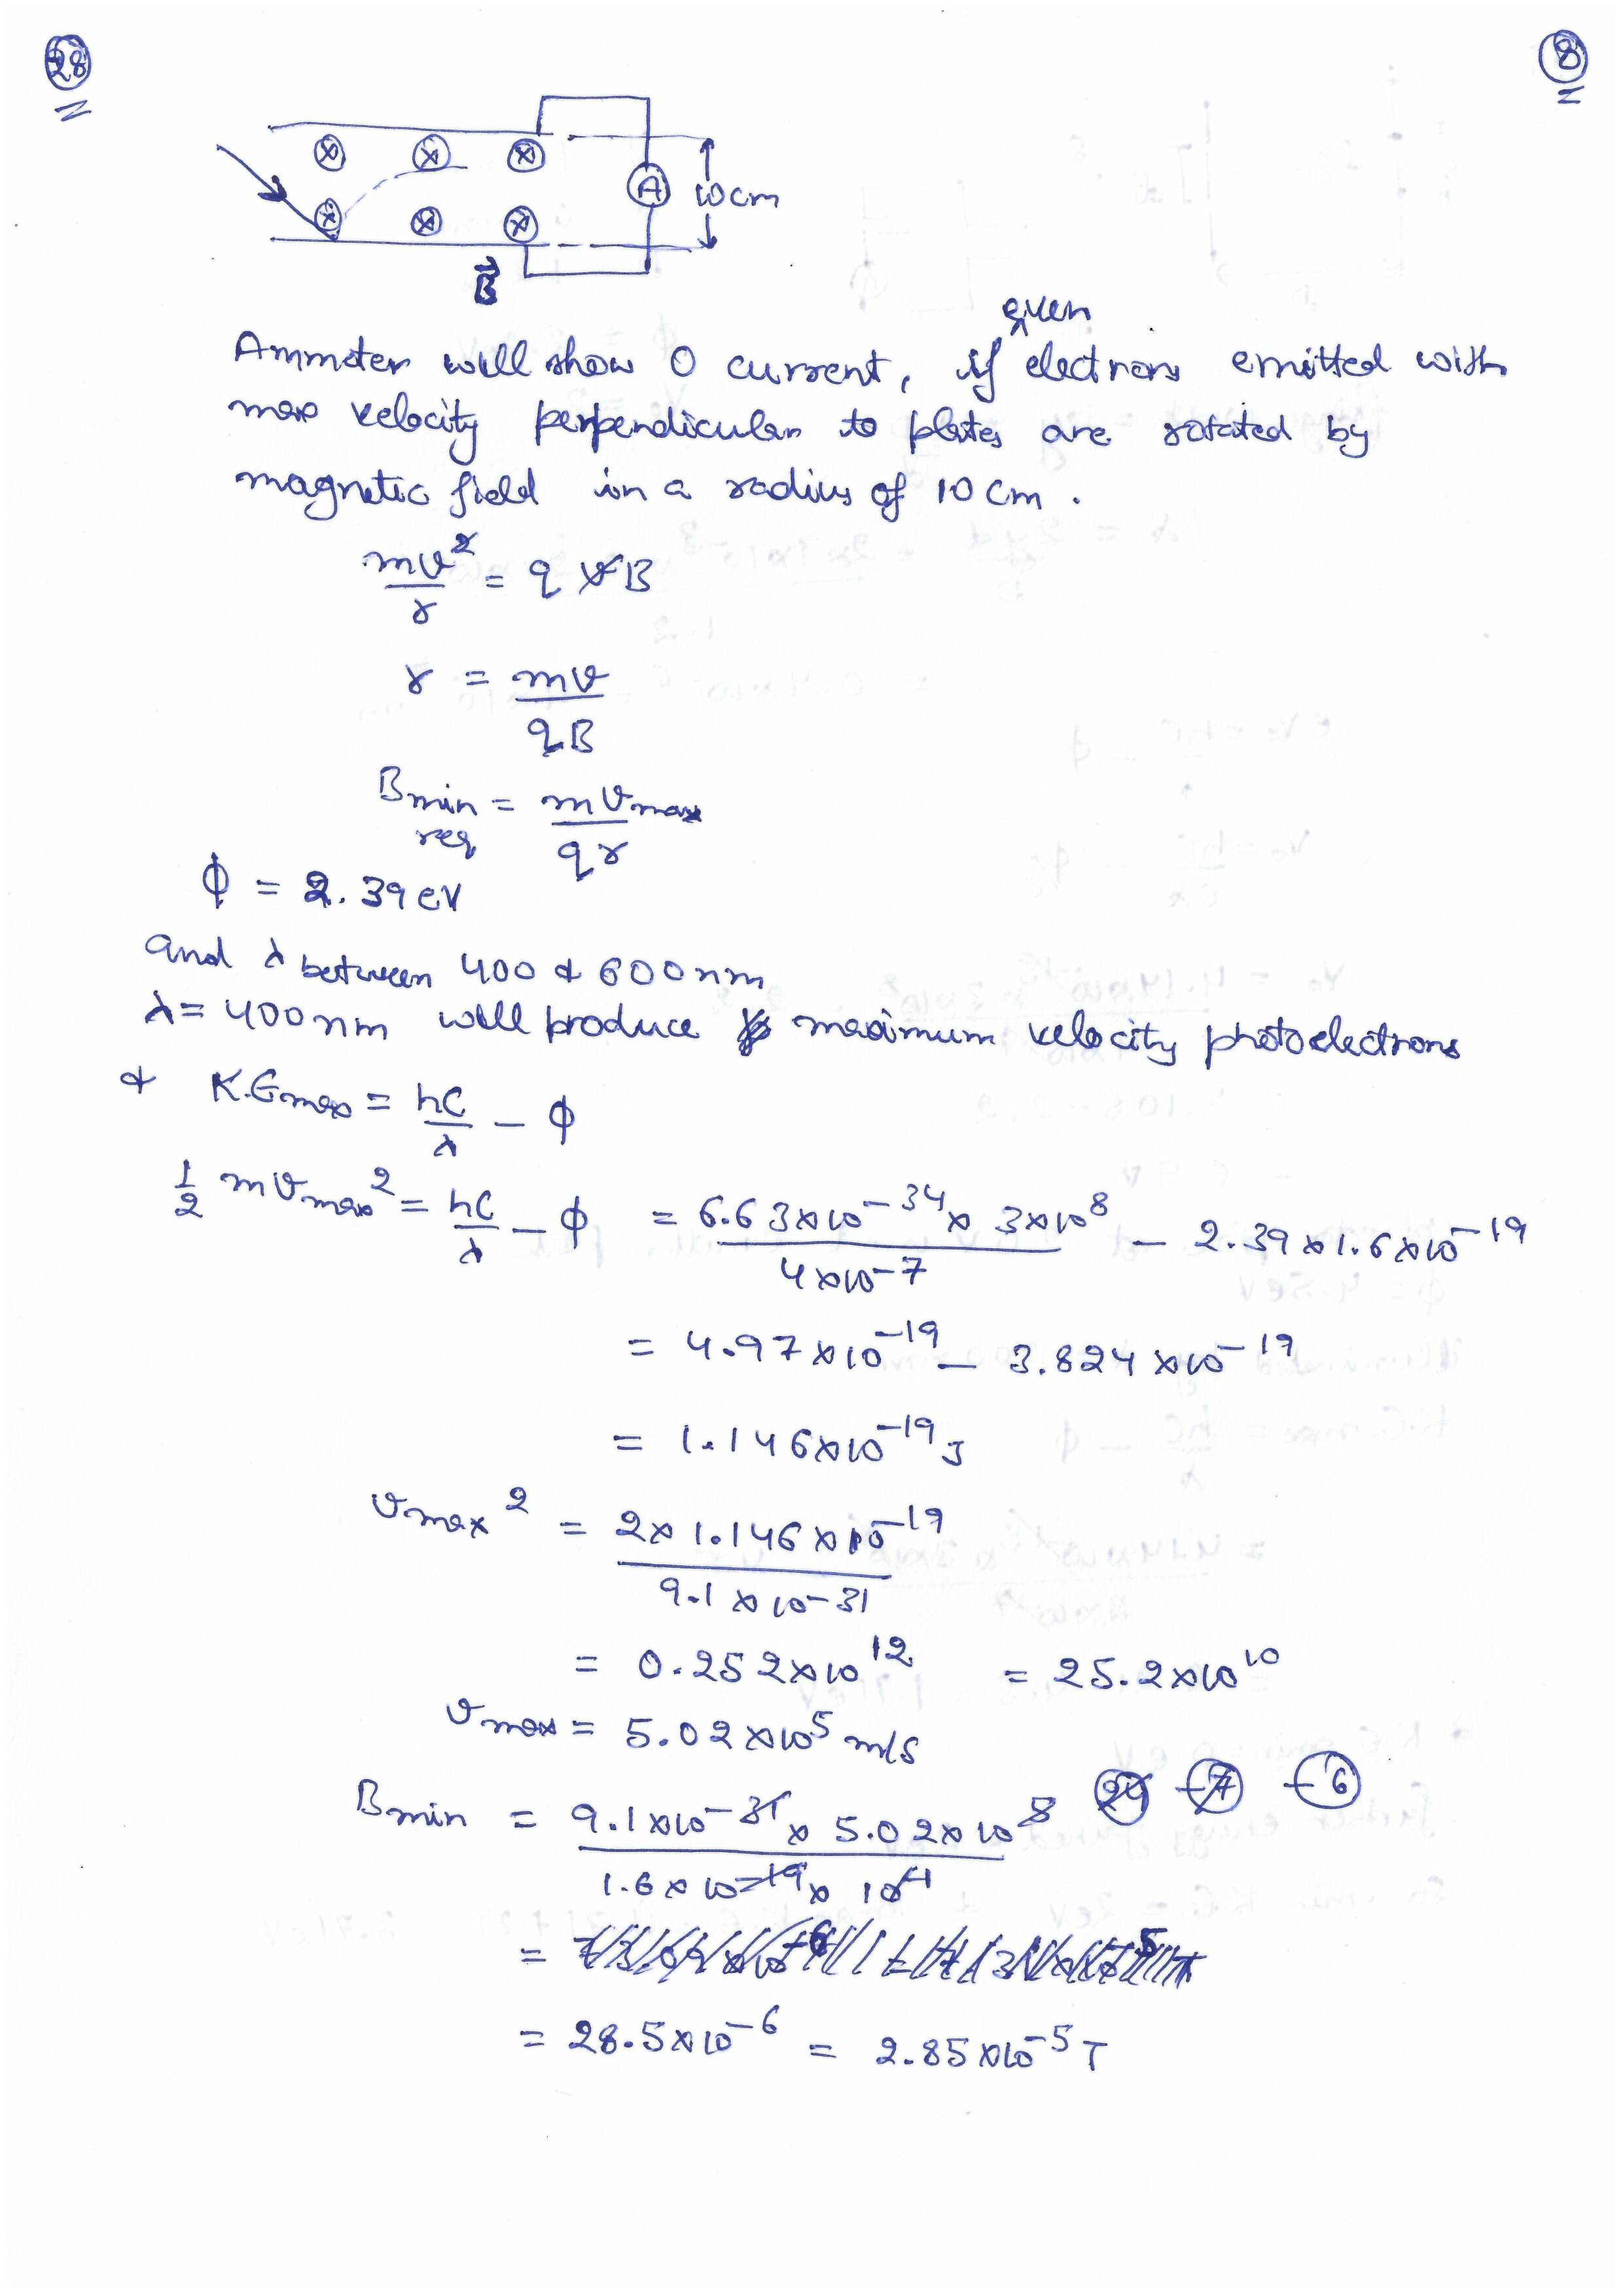 28
8
⊗ ⊗ ⊗
A 10cm
⊗ ⊗ ⊗
B⃗
even
Ammeter will show 0 current, if electrons emitted with
max velocity perpendicular to plates are rotated by
magnetic field in a radius of 10 cm.
mv²/r = q v B
r = mv/qB
Bmin req = m vmax/qr
ϕ = 2.39 eV
and λ between 400 & 600 nm
λ = 400 nm will produce maximum velocity photoelectrons
& K.Emax = hc/λ - ϕ
1/2 m vmax² = hc/λ - ϕ = 6.63×10⁻³⁴ × 3×10⁸/4×10⁻⁷ - 2.39×1.6×10⁻¹⁹
= 4.97×10⁻¹⁹ - 3.824×10⁻¹⁹
= 1.146×10⁻¹⁹ J
vmax² = 2×1.146×10⁻¹⁹/9.1×10⁻³¹
= 0.252×10¹² = 25.2×10¹⁰
vmax = 5.02×10⁵ m/s
29 -7 -6
Bmin = 9.1×10⁻³¹ × 5.02×10⁵/1.6×10⁻¹⁹ × 10⁻¹
= 28.5×10⁻⁶ = 2.85×10⁻⁵ T